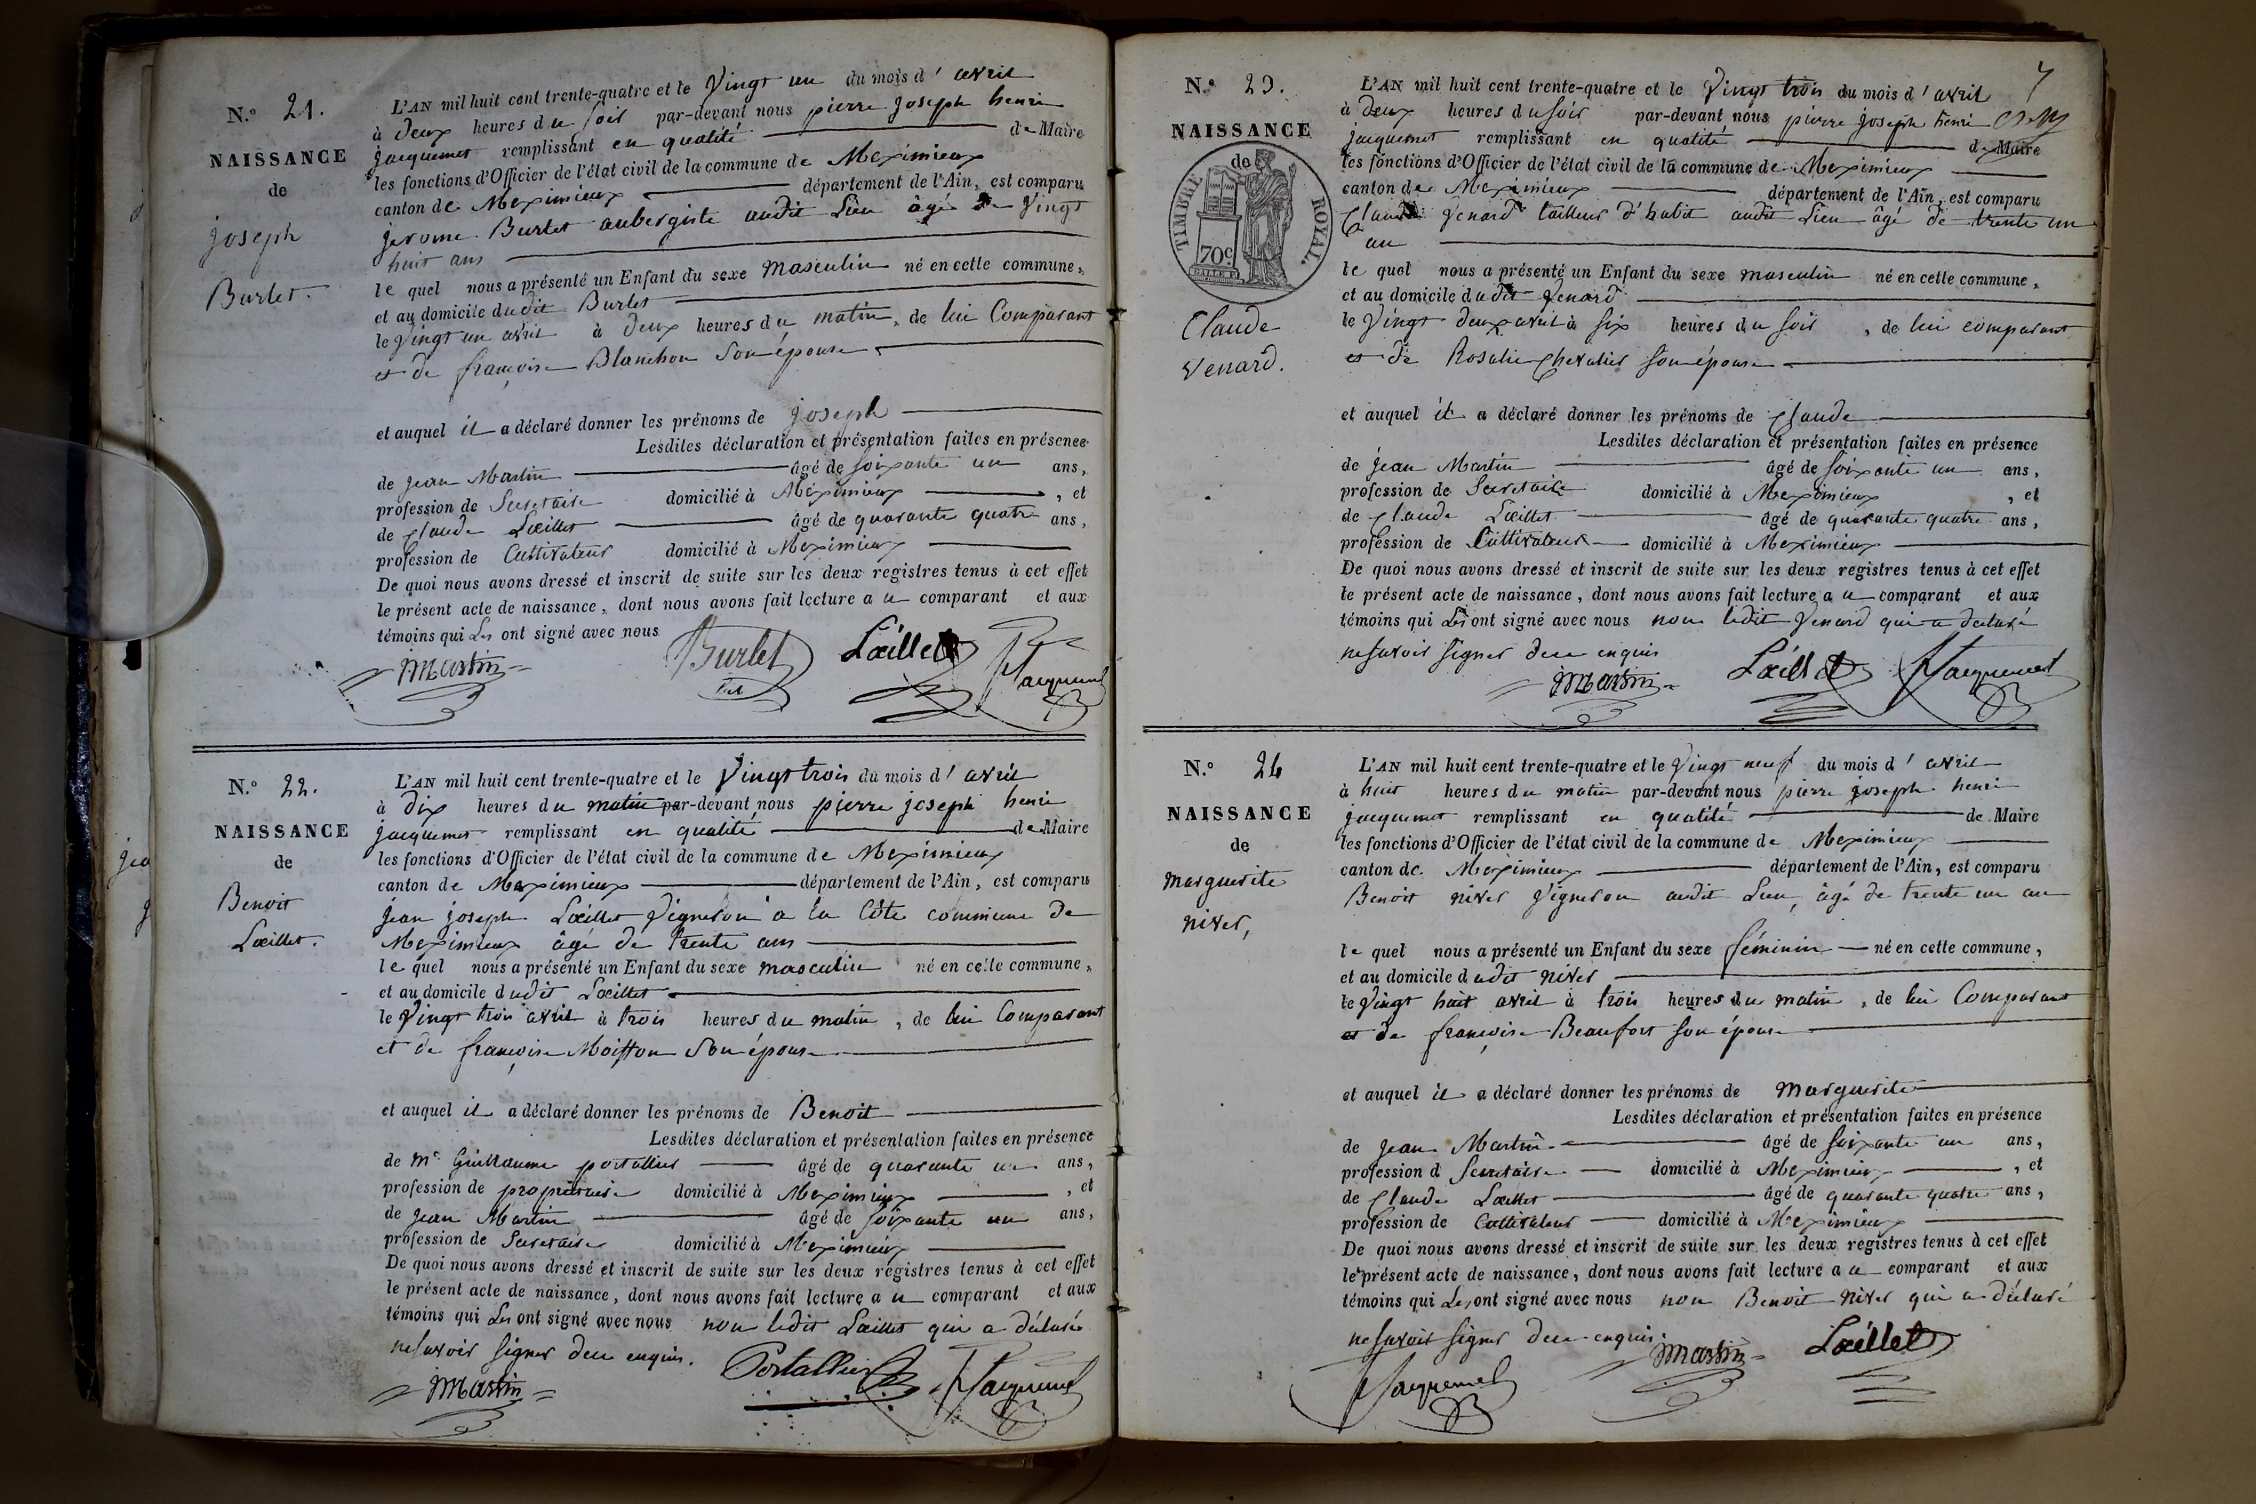 N.° 21.
NAISSANCE
de
joseph
Burlet.
L'AN mil huit cent trente-quatre et le Vingt un du mois d' avril
à deux heures du soir par-devant nous pierre joseph henri
jacquemet remplissant en qualité de Maire
les fonctions d'Officier de l'état civil de la commune de Meximieux
canton de Meximieux département de l'Ain, est comparu
jerome Burlet aubergiste audit Lieu âgé de Vingt
huit ans
le quel nous a présenté un Enfant du sexe masculin né en cette commune,
et au domicile dudit Burlet
le Vingt un avril à deux heures du matin, de lui Comparant
et de françoise Blanchon son épouse
et auquel il a déclaré donner les prénoms de joseph
Lesdites déclaration et présentation faites en présence
de jean Martin âgé de soixante un ans,
profession de Secretaire domicilié à Meximieux, et
de Claude Lœillet âgé de quarante quatre ans,
profession de Cultivateur domicilié à Meximieux
De quoi nous avons dressé et inscrit de suite sur les deux registres tenus à cet effet
le présent acte de naissance, dont nous avons fait lecture a u comparant et aux
témoins qui Les ont signé avec nous
Martin Burlet Lœillet Jacquemet
N.° 22.
NAISSANCE
de
Benoit
Lœillet.
L'AN mil huit cent trente-quatre et le Vingt trois du mois d' avril
à dix heures du matin par-devant nous pierre joseph henri
jacquemet remplissant en qualité de Maire
les fonctions d'Officier de l'état civil de la commune de Meximieux
canton de Meximieux département de l'Ain, est comparu
jean joseph Lœillet Vigneron a la Côte commune de
Meximieux âgé de trente ans
le quel nous a présenté un Enfant du sexe masculin né en cette commune,
et au domicile dudit Lœillet
le Vingt trois avril à trois heures du matin, de lui Comparant
et de françoise Moiffon son épouse
et auquel il a déclaré donner les prénoms de Benoit
Lesdites déclaration et présentation faites en présence
de Mr Guillaume portallier âgé de quarante un ans,
profession de propriétaire domicilié à Meximieux, et
de jean Martin âgé de soixante un ans,
profession de Secretaire domicilié à Meximieux
De quoi nous avons dressé et inscrit de suite sur les deux registres tenus à cet effet
le présent acte de naissance, dont nous avons fait lecture a u comparant et aux
témoins qui Les ont signé avec nous non ledit Lœillet qui a déclaré
ne savoir signer de ce enquis.
Martin Portallier Jacquemet
7
N.° 23.
NAISSANCE
de
TIMBRE ROYAL.
70c
Claude
Venard.
L'AN mil huit cent trente-quatre et le Vingt trois du mois d' avril
à deux heures du soir par-devant nous pierre joseph henri
jacquemet remplissant en qualité de Maire
les fonctions d'Officier de l'état civil de la commune de Meximieux
canton de Meximieux département de l'Ain, est comparu
Claude Venard tailleur d'habit audit Lieu âgé de trente un
an
le quel nous a présenté un Enfant du sexe masculin né en cette commune,
et au domicile dudit Venard
le Vingt deux avril à six heures du soir, de lui comparant
et de Rosalie Chevalier son épouse
et auquel il a déclaré donner les prénoms de Claude
Lesdites déclaration et présentation faites en présence
de jean Martin âgé de soixante un ans,
profession de Secretaire domicilié à Meximieux, et
de Claude Lœillet âgé de quarante quatre ans,
profession de Cultivateur domicilié à Meximieux
De quoi nous avons dressé et inscrit de suite sur les deux registres tenus à cet effet
le présent acte de naissance, dont nous avons fait lecture a u comparant et aux
témoins qui Les ont signé avec nous non ledit Venard qui a déclaré
ne savoir signer de ce enquis
Martin Lœillet Jacquemet
N.° 24
NAISSANCE
de
marguerite
niver,
L'AN mil huit cent trente-quatre et le Vingt neuf du mois d' avril
à huit heures du matin par-devant nous pierre joseph henri
jacquemet remplissant en qualité de Maire
les fonctions d'Officier de l'état civil de la commune de Meximieux
canton de Meximieux département de l'Ain, est comparu
Benoit niver Vigneron audit Lieu, âgé de trente un an
le quel nous a présenté un Enfant du sexe féminin né en cette commune,
et au domicile dudit niver
le Vingt huit avril à trois heures du matin, de lui Comparant
et de françoise Beaufort son épouse
et auquel il a déclaré donner les prénoms de marguerite
Lesdites déclaration et présentation faites en présence
de jean Martin âgé de soixante un ans,
profession d Secretaire domicilié à Meximieux, et
de Claude Lœillet âgé de quarante quatre ans,
profession de Cultivateur domicilié à Meximieux
De quoi nous avons dressé et inscrit de suite sur les deux registres tenus à cet effet
le présent acte de naissance, dont nous avons fait lecture a u comparant et aux
témoins qui Les ont signé avec nous non Benoit niver qui a déclaré
ne savoir signer de ce enquis.
Jacquemet Martin Lœillet